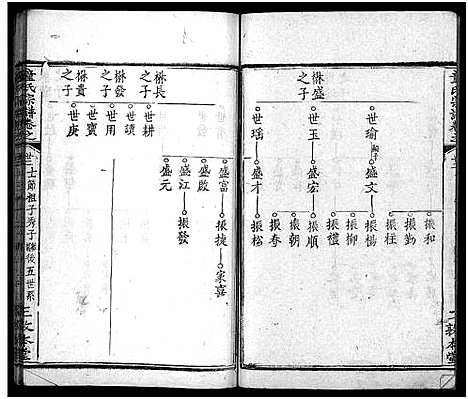 楙盛之子
世瑜
盛文
振和
振勳
振柱
振楊
振柳
振禮
世玉
盛宏
振順
振朝
振春
世瑤
盛才
振松
楙長之子
世耕
盛富
振捷
家喜
盛啟
盛江
振發
盛元
楙發之子
世用
世寶
楙貴之子
世庚
童氏宗譜卷之
世三
士節祖子秀子
後五世系
三敦本堂